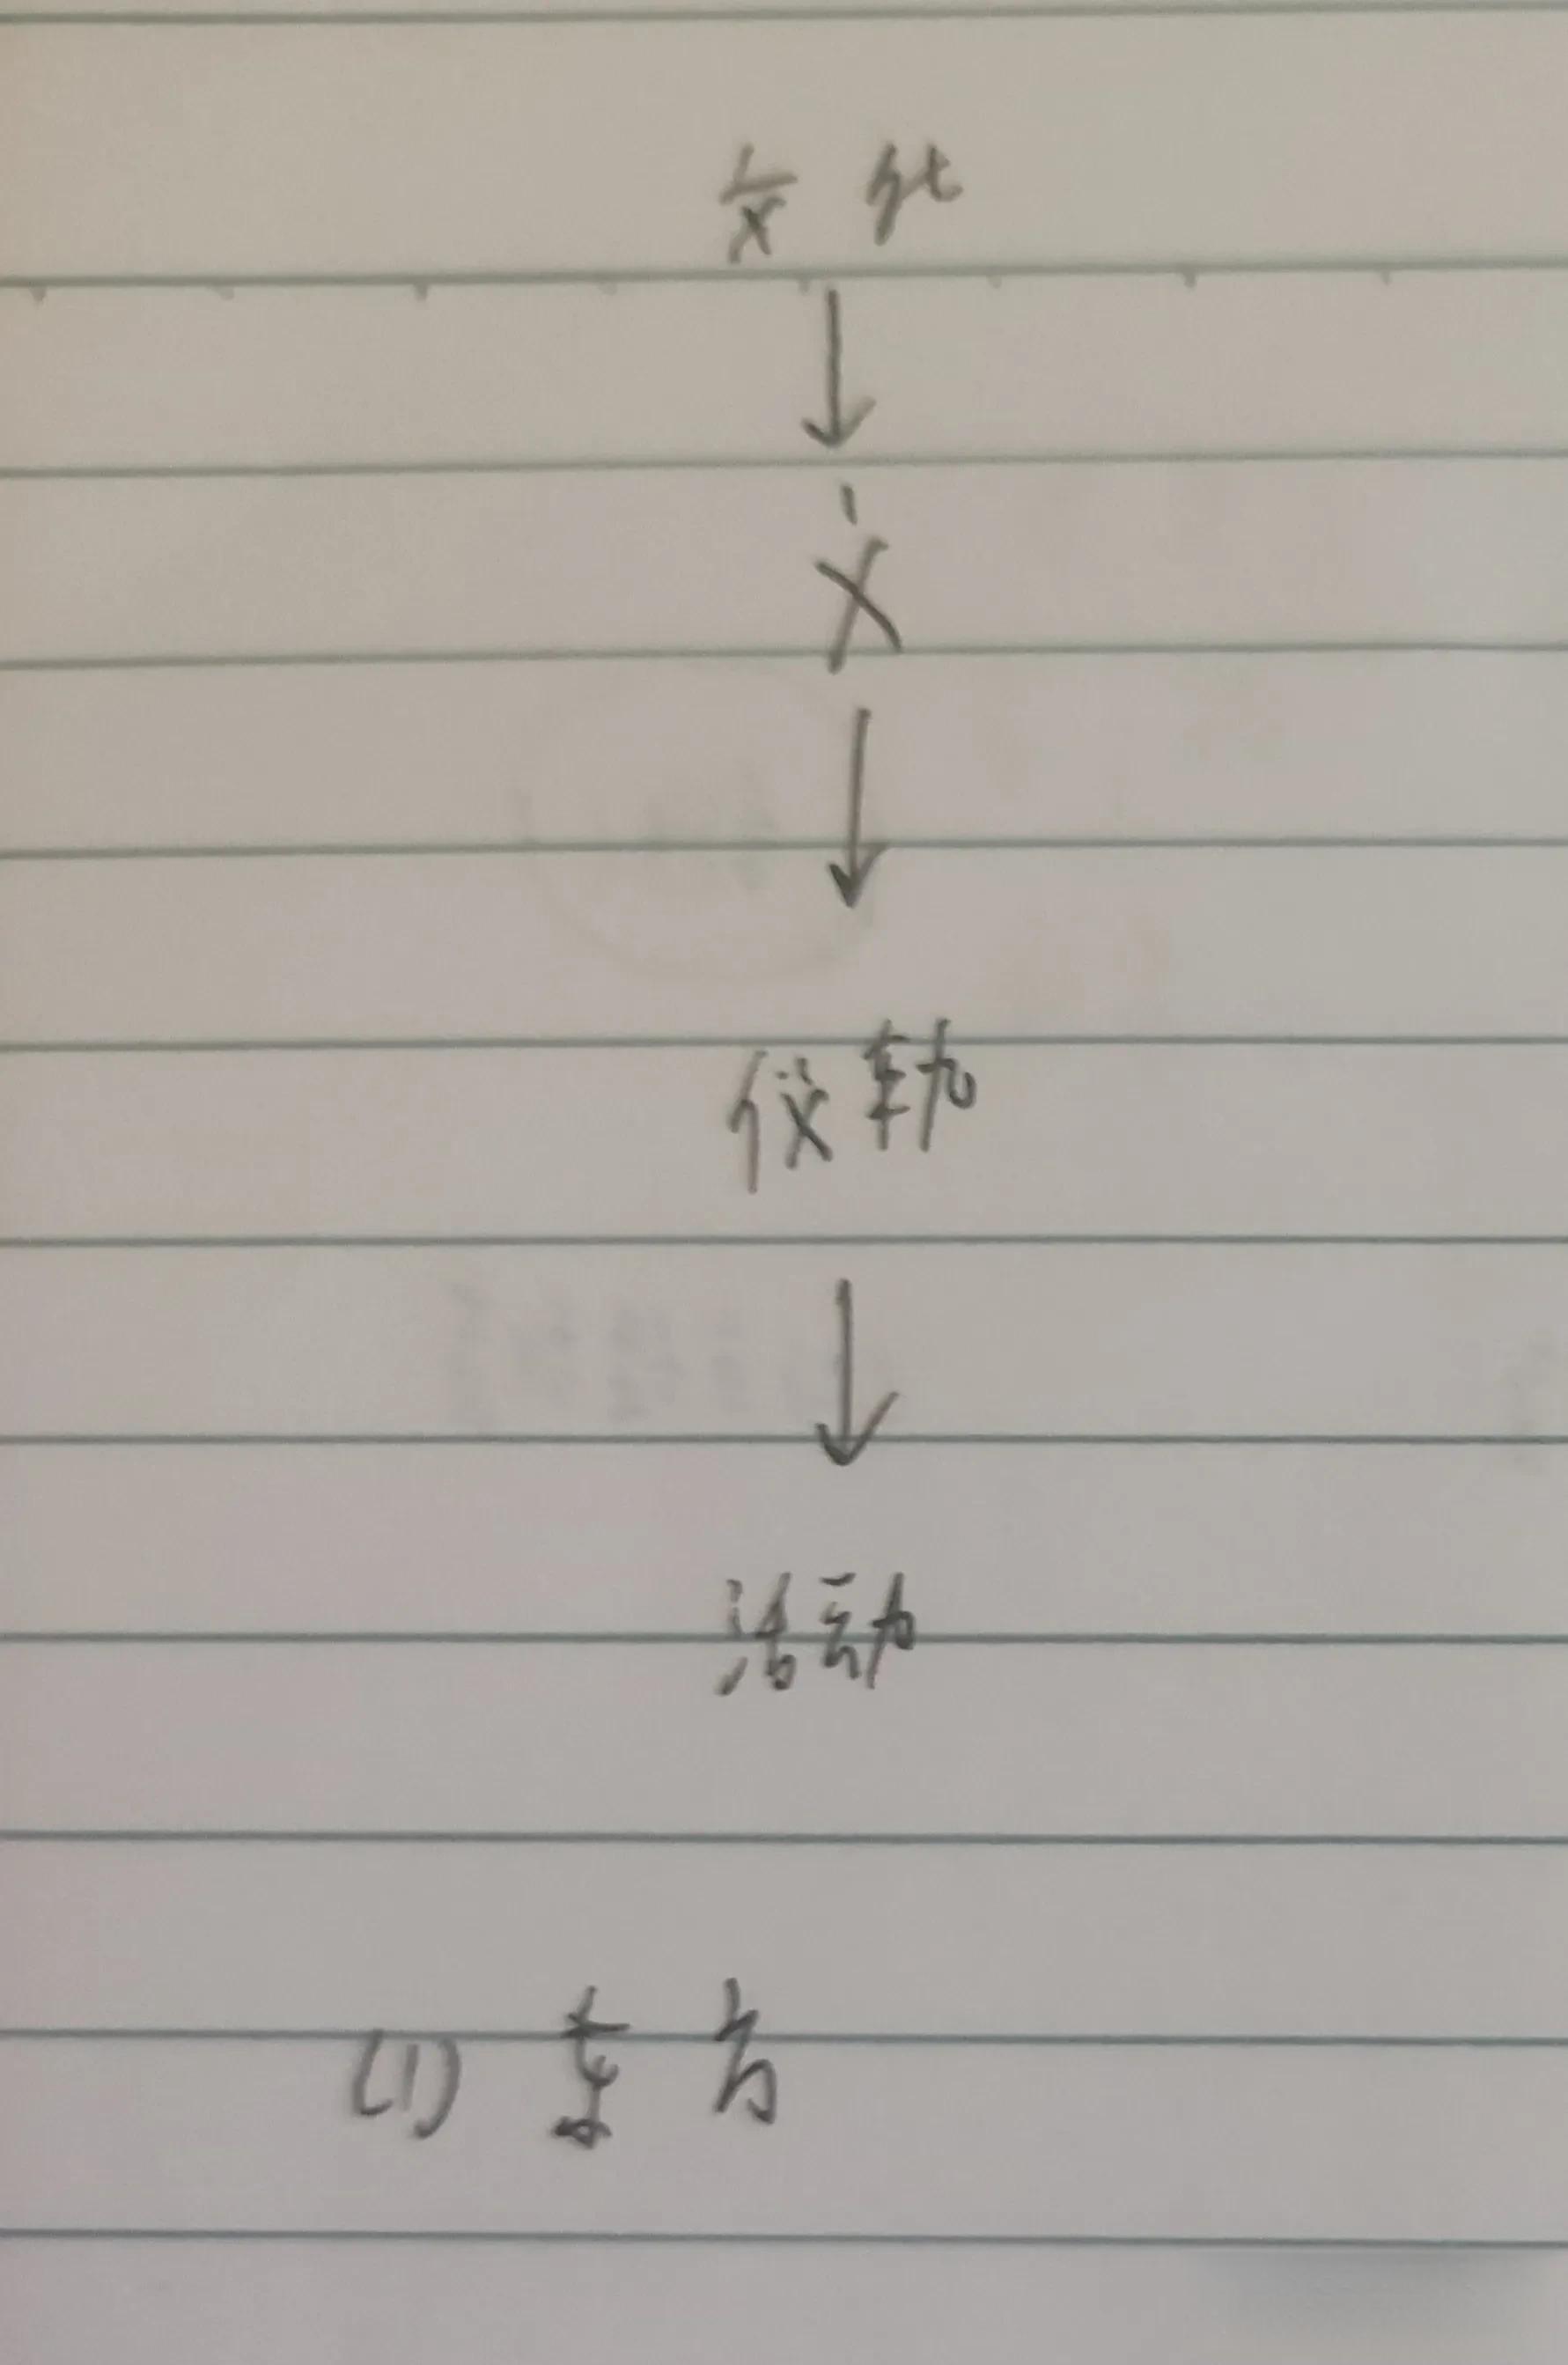 文化
↓
义
↓
仪轨
↓
活动
(1) 东方